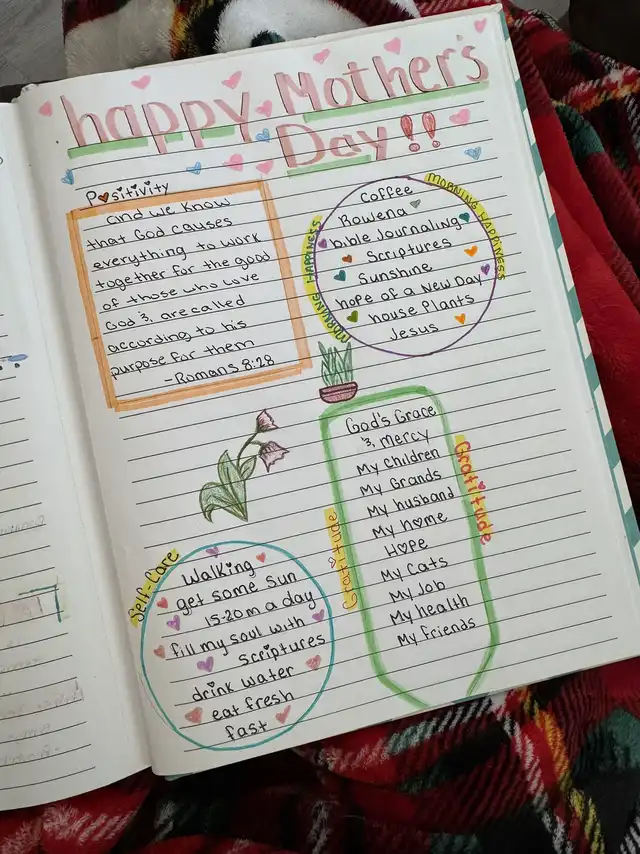 happy Mother's
Day!!
Positivity
and we know
that God causes
everything to work
together for the good
of those who love
God & are called
according to his
purpose for them
-Romans 8:28
MORNING HAPPINESS
MORNING HAPPINESS
Coffee
Rowena
bible Journaling
Scriptures
Sunshine
hope of a New Day
house Plants
Jesus
Gratitude
Gratitude
God's Grace
& Mercy
My Children
My Grands
My husband
My home
Hope
My Cats
My Job
My health
My friends
Self-Care
Walking
get some sun
15-20m a day
fill my soul with
scriptures
drink water
eat fresh
fast